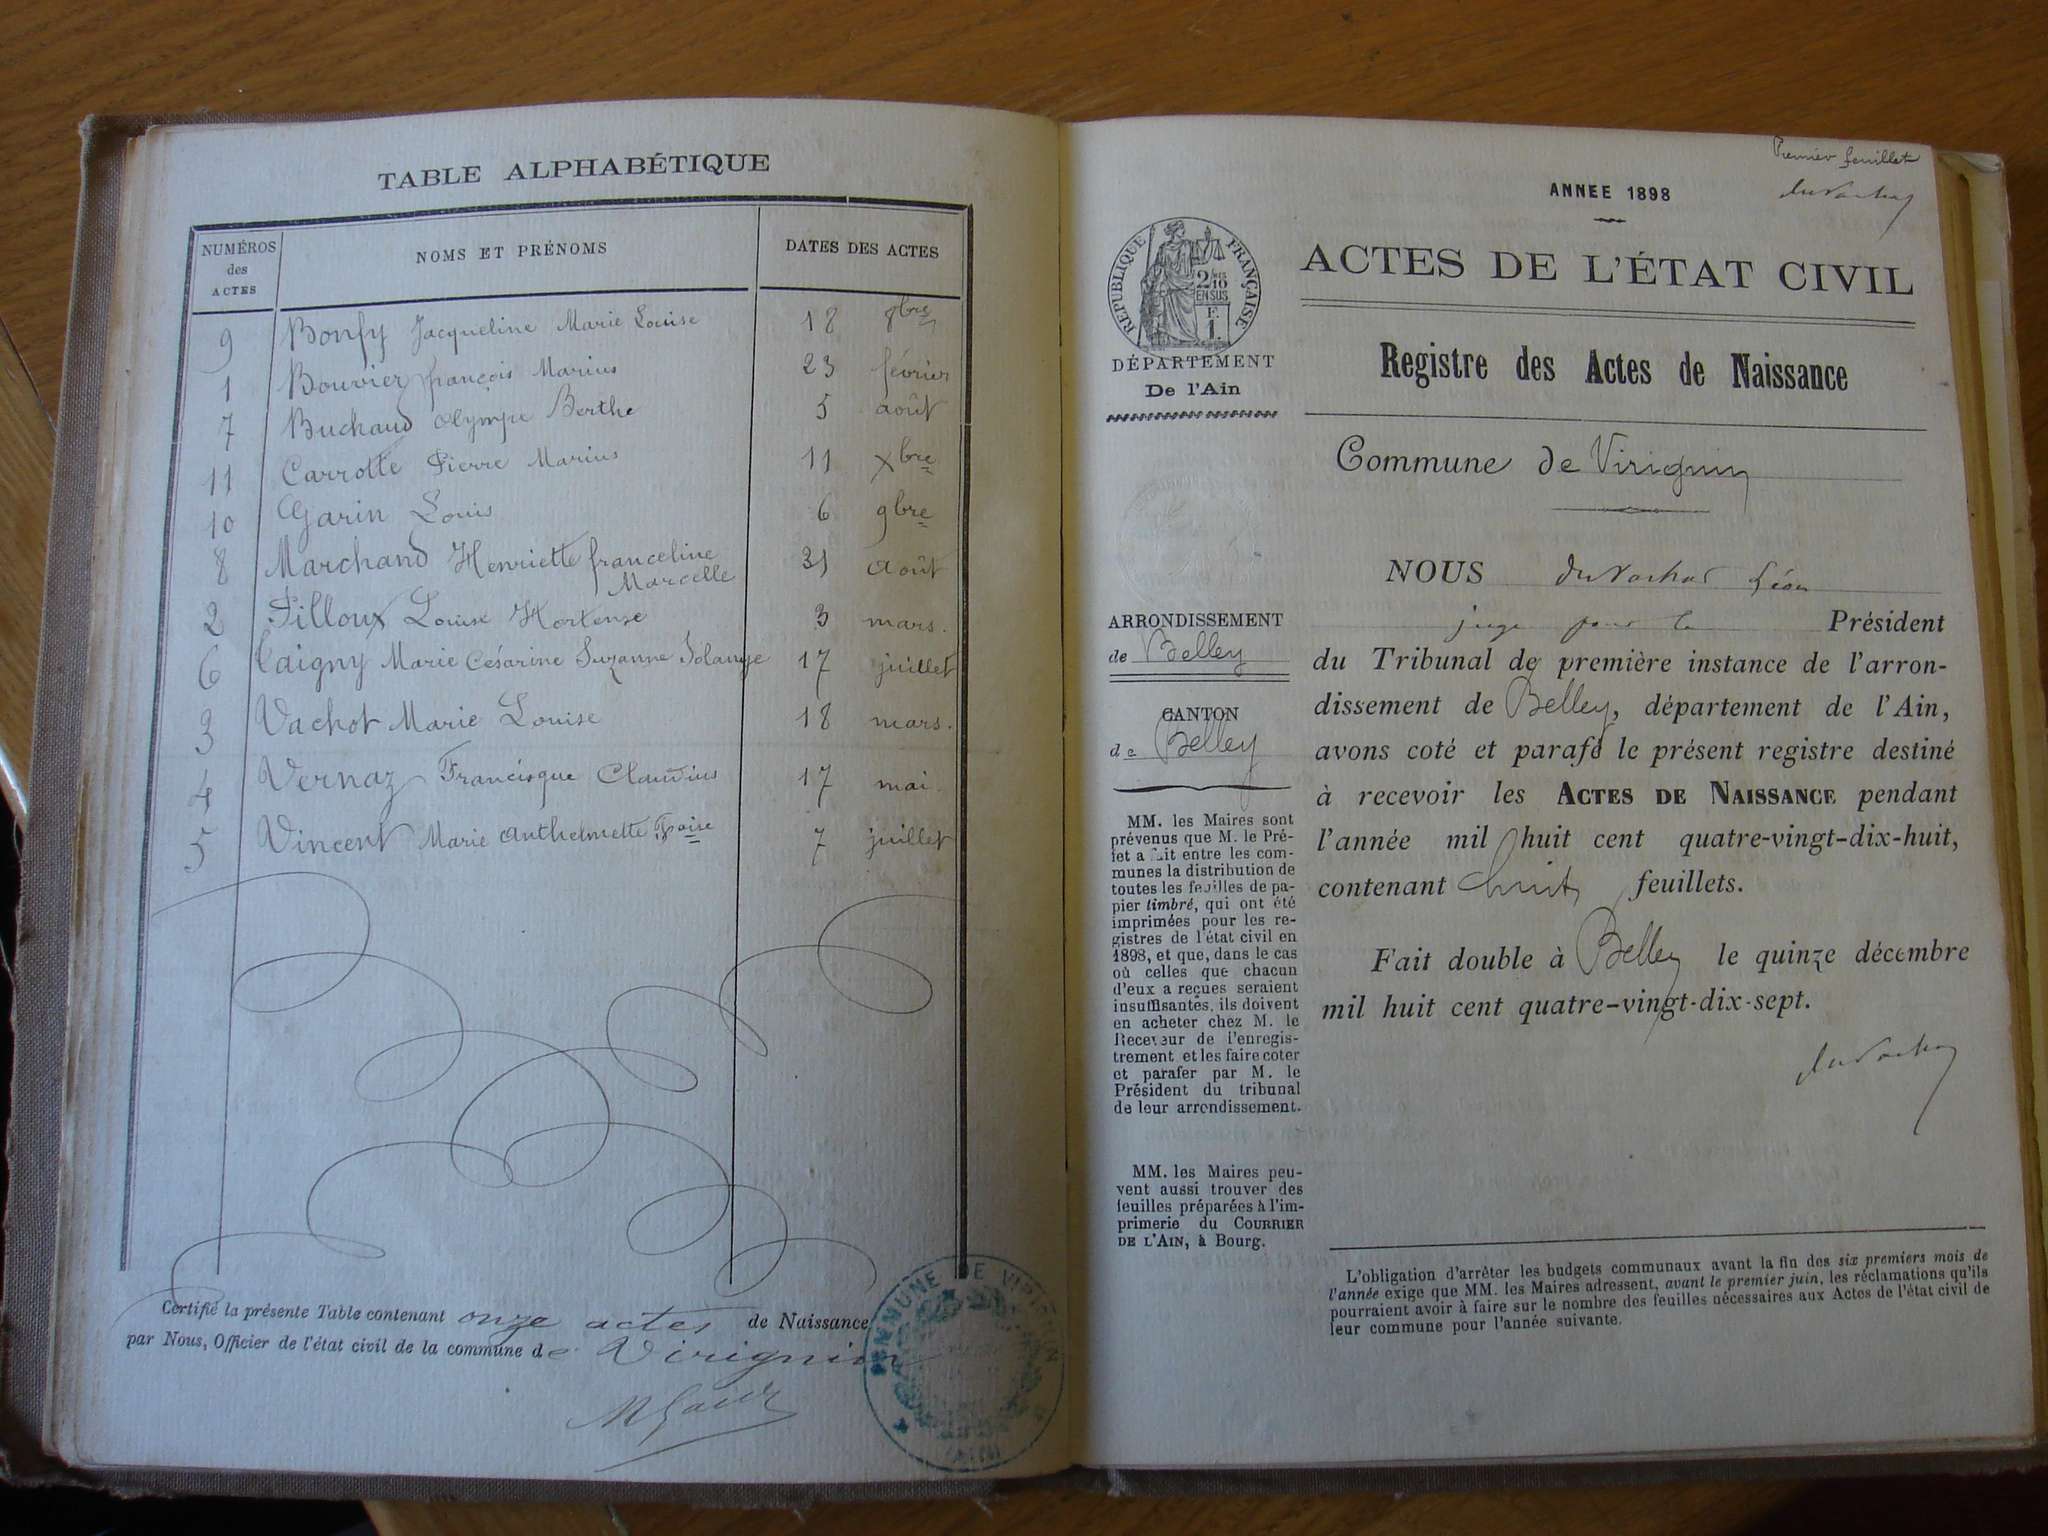 TABLE ALPHABÉTIQUE
NUMÉROS des ACTES
NOMS ET PRÉNOMS
DATES DES ACTES
9 Bonfy Jacqueline Marie Louise 18 8bre
1 Bouvier françois Marius 23 février
7 Buchaud Olympe Berthe 5 août
11 Carrotte Pierre Marius 11 xbre
10 Garin Louis 6 9bre
8 Marchand Henriette franceline 31 août
Marcelle
2 Pilloux Louise Hortense 3 mars.
6 Taigny Marie Césarine Suzanne Solange 17 juillet
3 Vachot Marie Louise 18 mars.
4 Vernaz Francisque Claudius 17 mai.
5 Vincent Marie Anthelmette Fçoise 7 juillet
Certifié la présente Table contenant onze actes de Naissance
par Nous, Officier de l'état civil de la commune de Virignin
COMMUNE DE VIRIGNIN
(AIN)
Premier feuillet
ANNEE 1898
RÉPUBLIQUE FRANÇAISE
2/10
EN SUS
F.
1.
DÉPARTEMENT
De l'Ain
ACTES DE L'ÉTAT CIVIL
Registre des Actes de Naissance
Commune de Virignin
ARRONDISSEMENT
de Belley
CANTON
de Belley
MM. les Maires sont
prévenus que M. le Pré-
fet a fait entre les com-
munes la distribution de
toutes les feuilles de pa-
pier timbré, qui ont été
imprimées pour les re-
gistres de l'état civil en
1898, et que, dans le cas
où celles que chacun
d'eux a reçues seraient
insuffisantes, ils doivent
en acheter chez M. le
Receveur de l'enregis-
trement et les faire coter
et parafer par M. le
Président du tribunal
de leur arrondissement.
MM. les Maires peu-
vent aussi trouver des
feuilles préparées à l'im-
primerie du COURRIER
DE L'AIN, à Bourg.
NOUS Léon
juge pour le Président
du Tribunal de première instance de l'arron-
dissement de Belley, département de l'Ain,
avons coté et parafé le présent registre destiné
à recevoir les ACTES DE NAISSANCE pendant
l'année mil huit cent quatre-vingt-dix-huit,
contenant huit feuillets.
Fait double à Belley le quinze décembre
mil huit cent quatre-vingt-dix-sept.
L'obligation d'arrêter les budgets communaux avant la fin des six premiers mois de
l'année exige que MM. les Maires adressent, avant le premier juin, les réclamations qu'ils
pourraient avoir à faire sur le nombre des feuilles nécessaires aux Actes de l'état civil de
leur commune pour l'année suivante.